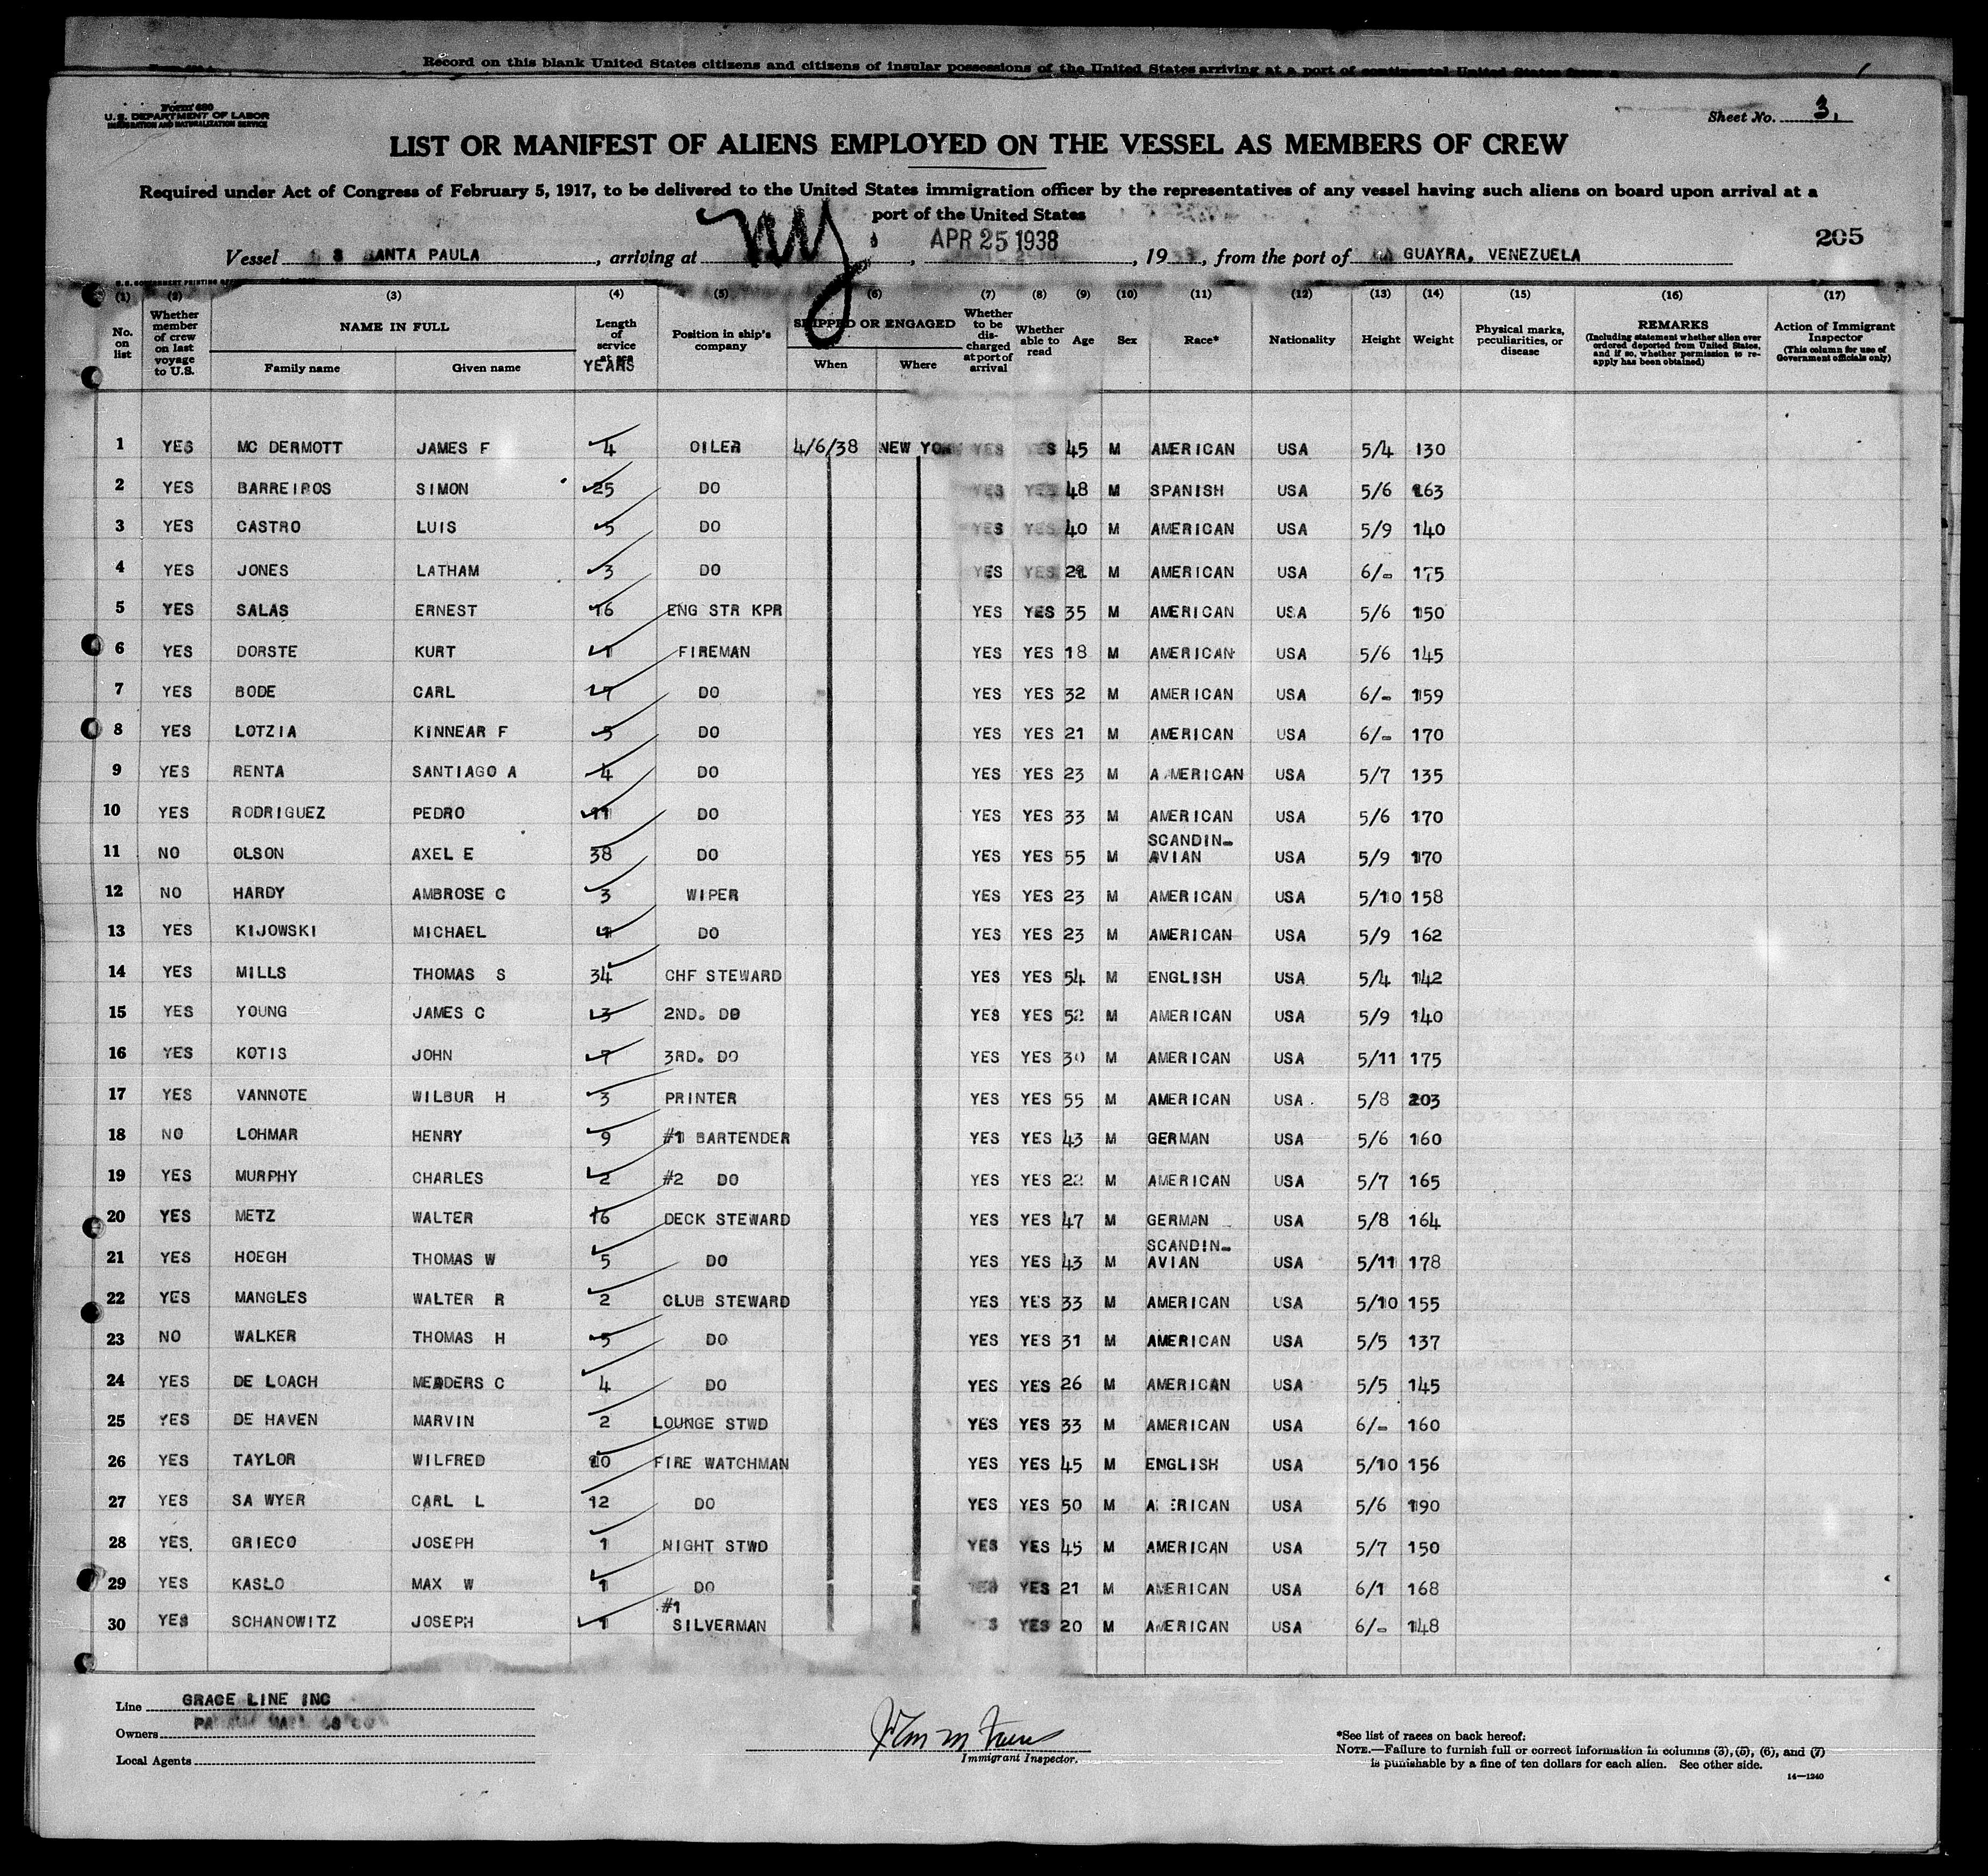 Record on this blank United States citizens and citizens of insular possessions of the United States arriving at a port of continental United States from a
Form 680
U. S. DEPARTMENT OF LABOR
IMMIGRATION AND NATURALIZATION SERVICE
Sheet No. 3.
LIST OR MANIFEST OF ALIENS EMPLOYED ON THE VESSEL AS MEMBERS OF CREW
Required under Act of Congress of February 5, 1917, to be delivered to the United States immigration officer by the representatives of any vessel having such aliens on board upon arrival at a
port of the United States
205
Vessel S S SANTA PAULA, arriving at NY, APR 25 1938, 1938, from the port of LA GUAYRA, VENEZUELA
(1) (2) (3) (4) (5) (6) (7) (8) (9) (10) (11) (12) (13) (14) (15) (16) (17)
No. on list
Whether member of crew on last voyage to U.S.
NAME IN FULL
Family name Given name
Length of service at sea
YEARS
Position in ship's company
SHIPPED OR ENGAGED
When Where
Whether to be discharged at port of arrival
Whether able to read
Age
Sex
Race*
Nationality
Height
Weight
Physical marks, peculiarities, or disease
REMARKS
(Including statement whether alien ever ordered deported from United States, and if so, whether permission to reapply has been obtained)
Action of Immigrant Inspector
(This column for use of Government officials only)
1 YES MC DERMOTT JAMES F 4 OILER 4/6/38 NEW YORK YES YES 45 M AMERICAN USA 5/4 130
2 YES BARREIROS SIMON 25 DO YES YES 48 M SPANISH USA 5/6 163
3 YES CASTRO LUIS 5 DO YES YES 40 M AMERICAN USA 5/9 140
4 YES JONES LATHAM 3 DO YES YES M AMERICAN USA 6/- 175
5 YES SALAS ERNEST 16 ENG STR KPR YES YES 35 M AMERICAN USA 5/6 150
6 YES DORSTE KURT 1 FIREMAN YES YES 18 M AMERICAN USA 5/6 145
7 YES BODE CARL 7 DO YES YES 32 M AMERICAN USA 6/- 159
8 YES LOTZIA KINNEAR F 5 DO YES YES 21 M AMERICAN USA 6/- 170
9 YES RENTA SANTIAGO A 4 DO YES YES 23 M A MERICAN USA 5/7 135
10 YES RODRIGUEZ PEDRO 11 DO YES YES 33 M AMERICAN USA 5/6 170
11 NO OLSON AXEL E 38 DO YES YES 55 M SCANDIN-AVIAN USA 5/9 170
12 NO HARDY AMBROSE C 3 WIPER YES YES 23 M AMERICAN USA 5/10 158
13 YES KIJOWSKI MICHAEL DO YES YES 23 M AMERICAN USA 5/9 162
14 YES MILLS THOMAS S 34 CHF STEWARD YES YES 54 M ENGLISH USA 5/4 142
15 YES YOUNG JAMES C 13 2ND. DO YES YES 52 M AMERICAN USA 5/9 140
16 YES KOTIS JOHN 7 3RD. DO YES YES 30 M AMERICAN USA 5/11 175
17 YES VANNOTE WILBUR H 3 PRINTER YES YES 55 M AMERICAN USA 5/8 203
18 NO LOHMAR HENRY 9 #1 BARTENDER YES YES 43 M GERMAN USA 5/6 160
19 YES MURPHY CHARLES 2 #2 DO YES YES 22 M AMERICAN USA 5/7 165
20 YES METZ WALTER 16 DECK STEWARD YES YES 47 M GERMAN USA 5/8 164
21 YES HOEGH THOMAS W 5 DO YES YES 43 M SCANDIN-AVIAN USA 5/11 178
22 YES MANGLES WALTER R 2 CLUB STEWARD YES YES 33 M AMERICAN USA 5/10 155
23 NO WALKER THOMAS H 5 DO YES YES 31 M AMERICAN USA 5/5 137
24 YES DE LOACH MEADERS C 4 DO YES YES 26 M AMERICAN USA 5/5 145
25 YES DE HAVEN MARVIN 2 LOUNGE STWD YES YES 33 M AMERICAN USA 6/- 160
26 YES TAYLOR WILFRED FIRE WATCHMAN YES YES 45 M ENGLISH USA 5/10 156
27 YES SA WYER CARL L 12 DO YES YES 50 M AMERICAN USA 5/6 190
28 YES. GRIECO JOSEPH 1 NIGHT STWD YES YES 45 M AMERICAN USA 5/7 150
29 YES KASLO MAX W 1 DO YES YES 21 M AMERICAN USA 6/1 168
30 YES SCHANOWITZ JOSEPH 1 #1 SILVERMAN YES YES 20 M AMERICAN USA 6/- 148
Line GRACE LINE INC
Owners
Local Agents
Immigrant Inspector.
*See list of races on back hereof.
NOTE.—Failure to furnish full or correct information in columns (3), (5), (6), and (7)
is punishable by a fine of ten dollars for each alien. See other side.
14—1240